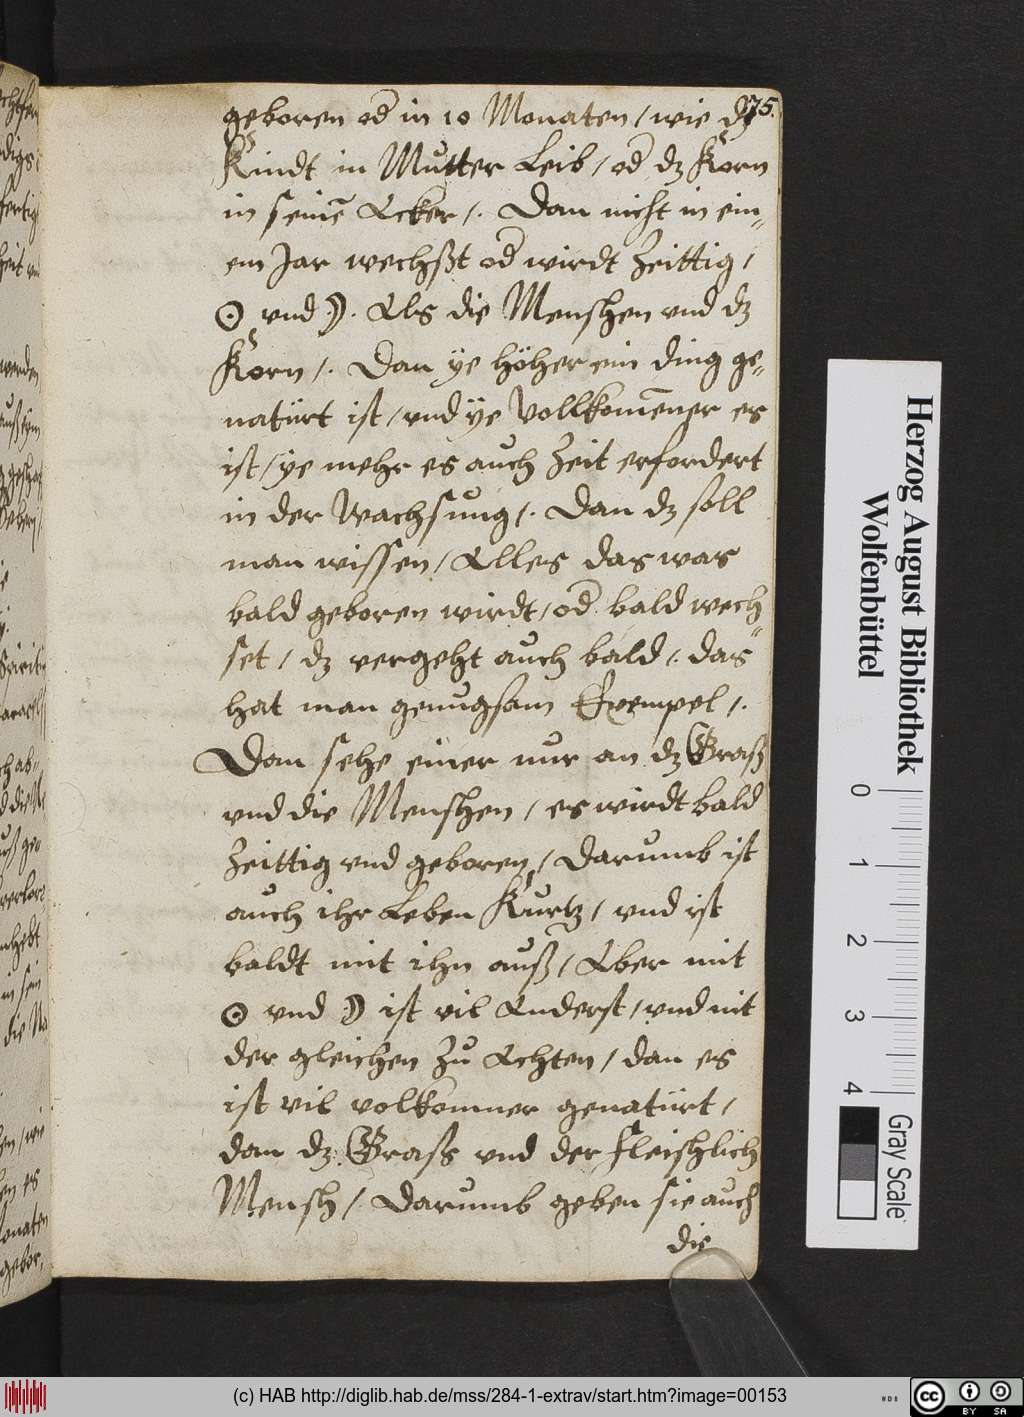 75.
geboren od in 10 Monaten / wie dz
Kindt in Mutter Leib / od dz Korn
in seinē Acker /. Dan nicht in ein„
em Jar wechßt od wirdt Zeittig /
☉ vnd ☽. Als die Menschen vnd dz
Korn /. Dan ye höher ein ding ge„
natürt ist / vnd ye Vollkom̄ener es
ist / ye mehr es auch Zeit erfordert
in der Wachsung /. Dan dz soll
man wissen / Alles das was
bald geboren wirdt / od bald wech„
set / dz vergeht auch bald /. das
hat man genugsam Exempel /.
Dan sehe einer nur an dz Graß
vnd die Menschen / es wirdt bald
Zeittig vnd geboren / Darumb ist
auch ihr Leben Kurtz / vnd ist
baldt mit ihn auß / Aber mit
☉ vnd ☽ ist vil Anderst / vnd nit
der gleichen Zu Achten / dan es
ist vil volkomner genatürt /
dan dz Graß vnd der fleischlich
Mensch /. Darumb geben sie auch
die
Herzog August Bibliothek
Wolfenbüttel
0 1 2 3 4
Gray Scale
(c) HAB http://diglib.hab.de/mss/284-1-extrav/start.htm?image=00153
WDB
cc BY SA